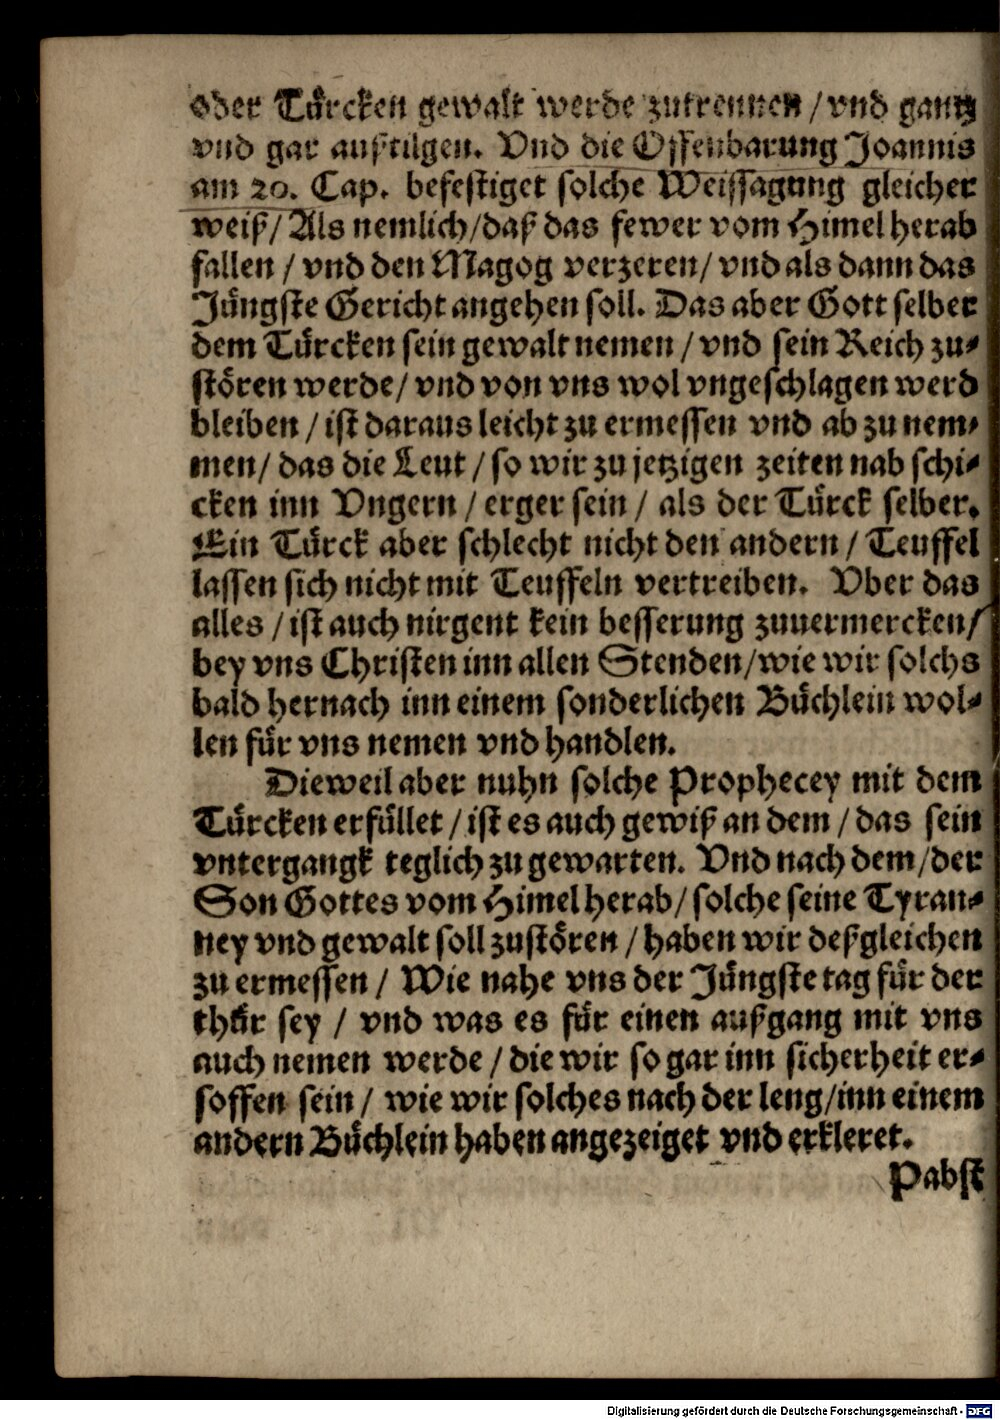 oder Tuͤrcken gewalt werde zutrennen / vnd gantz
vnd gar außtilgen. Vnd die Offenbarung Joannis
am 20. Cap. befestiget solche Weissagung gleicher
weiß / Als nemlich / daß das fewer vom Himel herab
fallen / vnd den Magog verzeren / vnd als dann das
Juͤngste Gericht angehen soll. Das aber Gott selber
dem Tuͤrcken sein gewalt nemen / vnd sein Reich zu⸗
stoͤren werde / vnd von vns wol vngeschlagen werd
bleiben / ist daraus leicht zu ermessen vnd ab zu nem⸗
men / das die Leut / so wir zu jetzigen zeiten nab schi⸗
cken inn Vngern / erger sein / als der Tuͤrck selber.
Ein Tuͤrck aber schlecht nicht den andern / Teuffel
lassen sich nicht mit Teuffeln vertreiben. Vber das
alles / ist auch nirgent kein besserung zuuermercken /
bey vns Christen inn allen Stenden / wie wir solchs
bald hernach inn einem sonderlichen Buͤchlein wol⸗
len fuͤr vns nemen vnd handlen.
Dieweil aber nuhn solche Prophecey mit dem
Tuͤrcken erfuͤllet / ist es auch gewiß an dem / das sein
vntergangk teglich zu gewarten. Vnd nach dem / der
Son Gottes vom Himel herab / solche seine Tyran⸗
ney vnd gewalt soll zustoͤren / haben wir deßgleichen
zu ermessen / Wie nahe vns der Juͤngste tag fuͤr der
thuͤr sey / vnd was es fuͤr einen außgang mit vns
auch nemen werde / die wir so gar inn sicherheit er⸗
soffen sein / wie wir solches nach der leng / inn einem
andern Buͤchlein haben angezeiget vnd erkleret.
Pabst
Digitalisierung gefördert durch die Deutsche Forschungsgemeinschaft - DFG